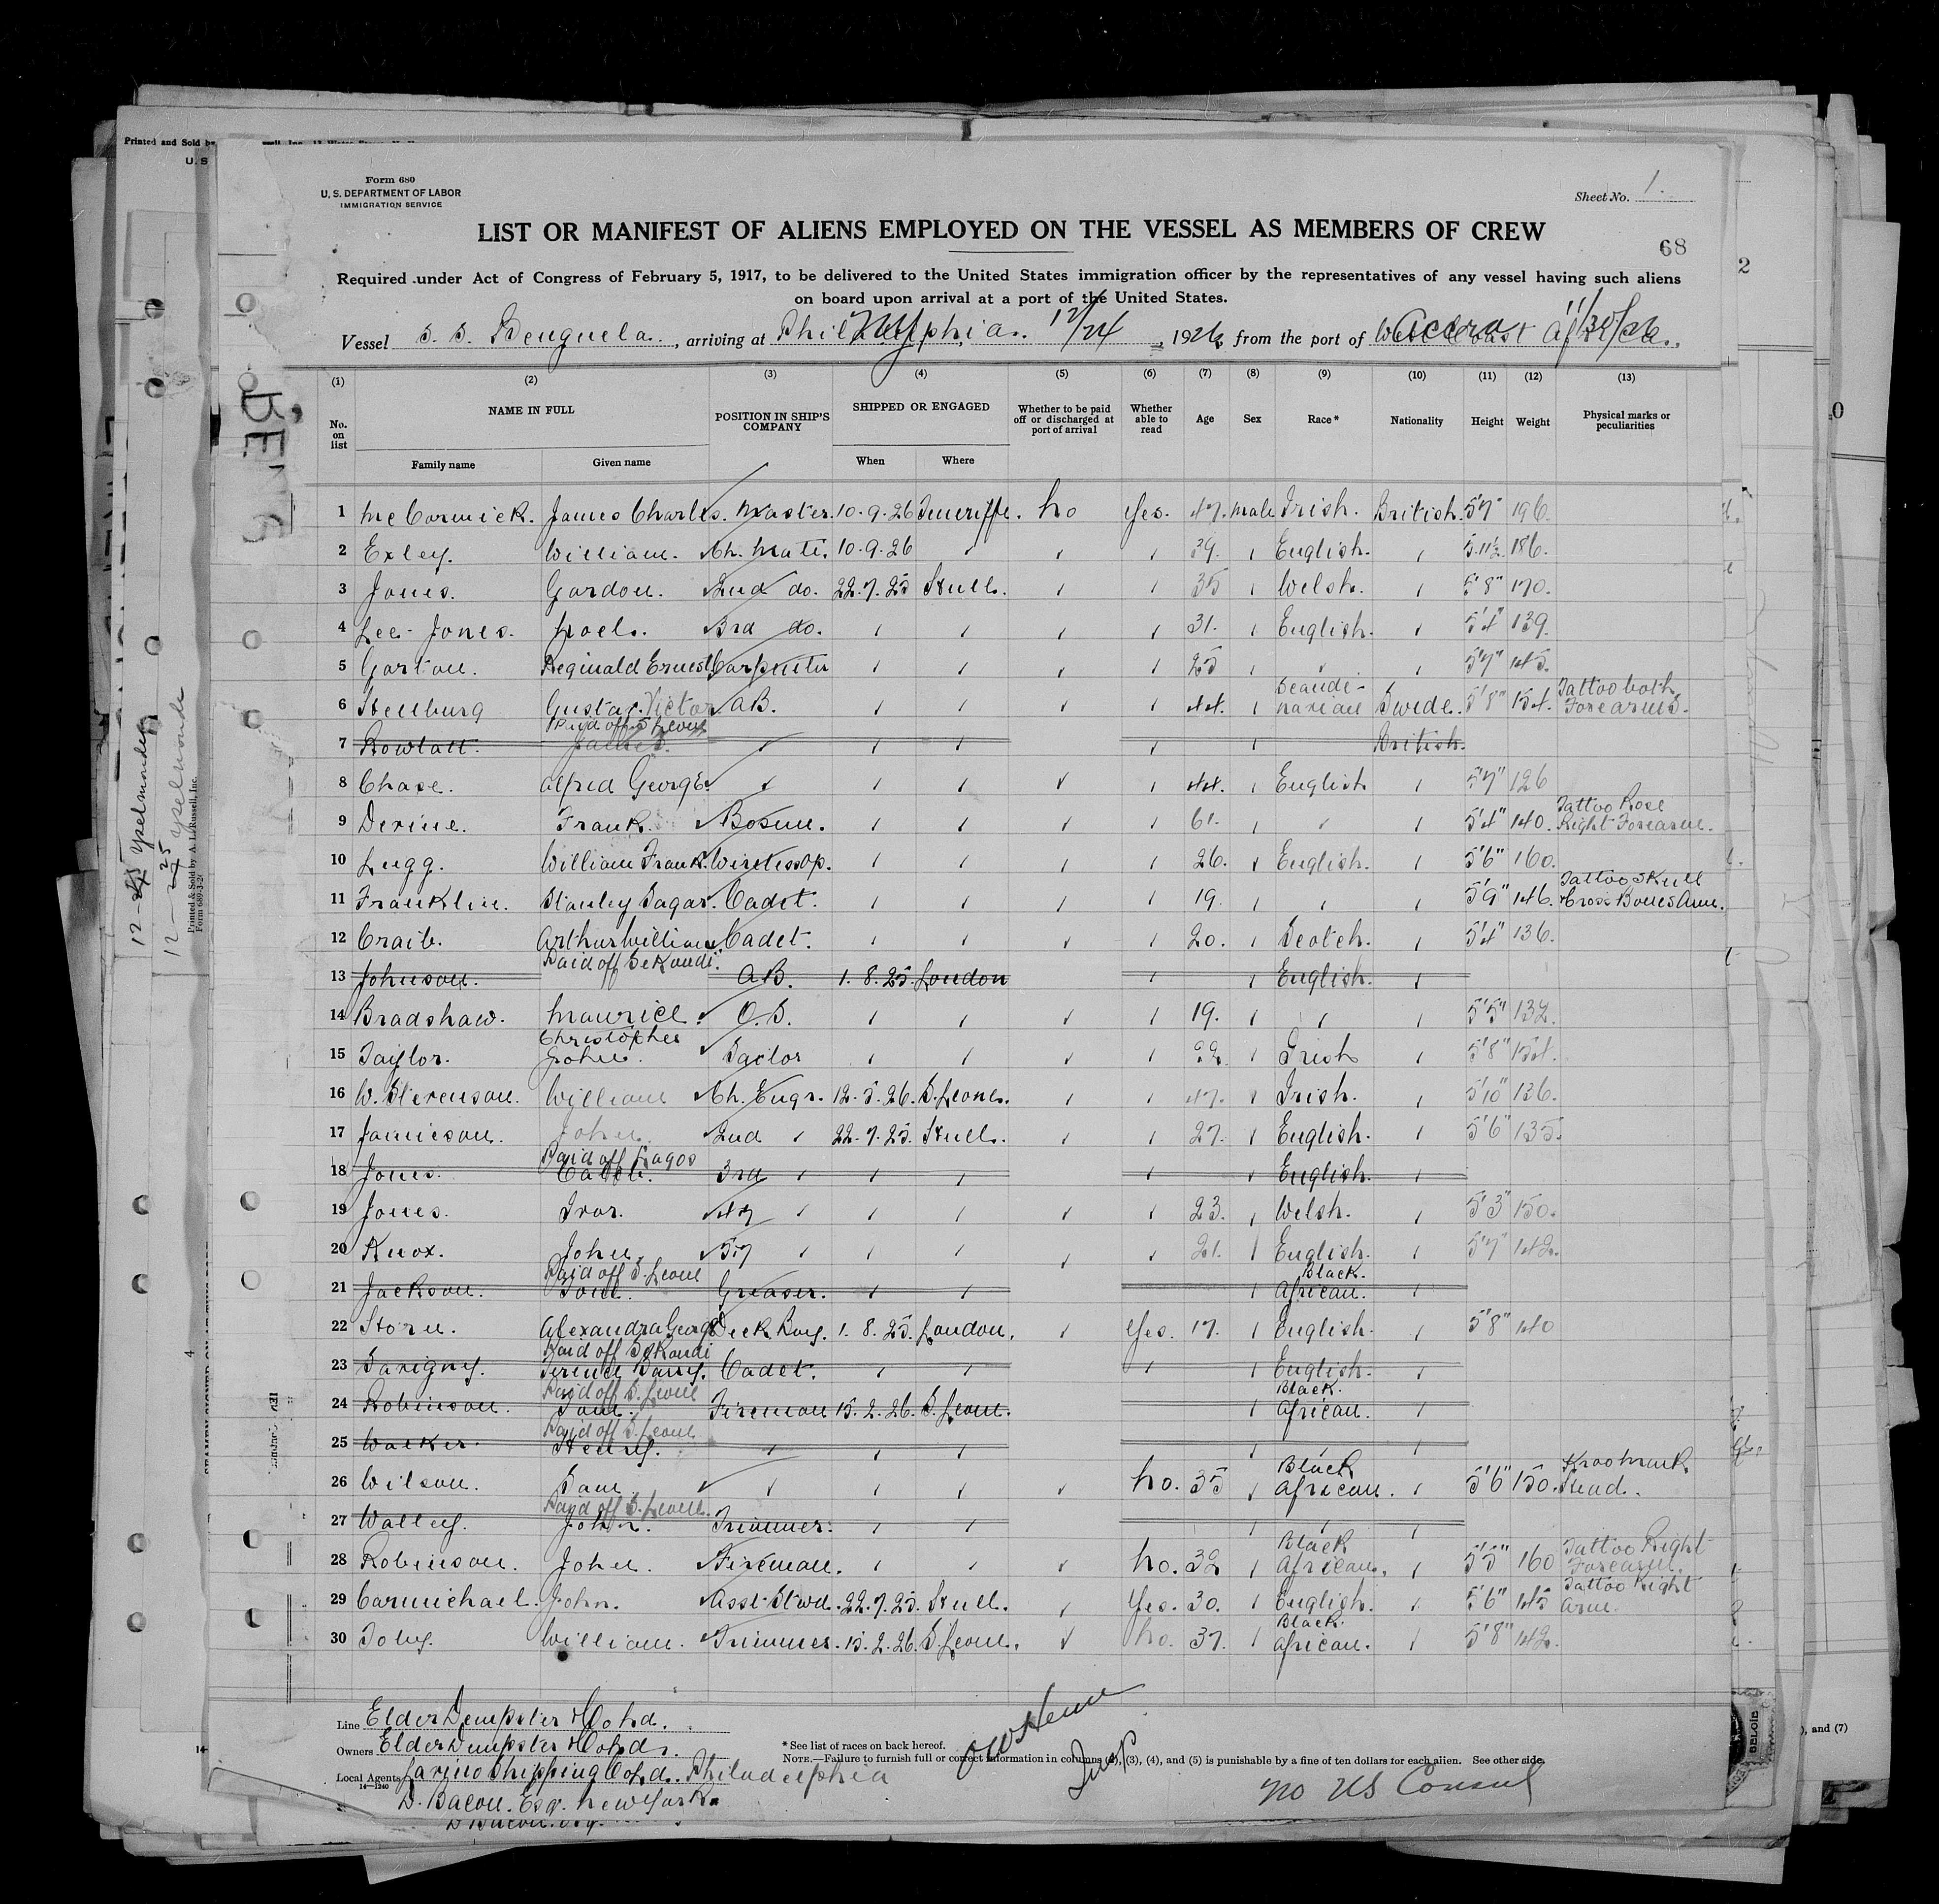 Form 680
U. S. DEPARTMENT OF LABOR
IMMIGRATION SERVICE
Sheet No. 1.
LIST OR MANIFEST OF ALIENS EMPLOYED ON THE VESSEL AS MEMBERS OF CREW
68
Required under Act of Congress of February 5, 1917, to be delivered to the United States immigration officer by the representatives of any vessel having such aliens
on board upon arrival at a port of the United States.
Vessel S. S. Benguela., arriving at Philadelphia. 12/24, 1926, from the port of Accra 11/30/26
(1) (2) (3) (4) (5) (6) (7) (8) (9) (10) (11) (12) (13)
No. on list NAME IN FULL POSITION IN SHIP'S COMPANY SHIPPED OR ENGAGED Whether to be paid off or discharged at port of arrival Whether able to read Age Sex Race* Nationality Height Weight Physical marks or peculiarities
Family name Given name When Where
1 McCormick. James Charles. Master. 10.9.26 Teneriffe. No Yes. 47. Male Irish. British. 5'7" 196.
2 Exley. William. Ch. Mate. 10.9.26 39. English. 5.11½ 186.
3 Jones. Gordon. 2nd do. 22.7.25 Hull. 35 Welsh. 5'8" 170.
4 Lee-Jones. Noel. 3rd do. 31. English. 5'4" 139.
5 Gorton. Reginald Ernest Carpenter 25 5'7" 145.
6 Stenburg Gustav. Victor AB. 44. Scandi-navian Swede. 5'8" 154. Tattoo both Forearms.
7 Rowlatt. James. Paid off S Leone British.
8 Chase. Alfred George. 44. English 5'7" 126
9 Devine. Frank. Bosun. 61. 5'4" 140. Tattoo Rose Right Forearm.
10 Lugg. William Frank. Wireless Op. 26. English. 5'6" 160.
11 Franklin. Stanley Sagar. Cadet. 19. 5'9" 146. Tattoo Skull Cross Bones Arm.
12 Craib. Arthur William Cadet. 20. Scotch. 5'4" 136.
13 Johnson. Paid off Sekondi. AB. 1.8.25. London English.
14 Bradshaw. Maurice. O.S. 19. 5'5" 132.
15 Taylor. Christopher John. Sailor 22. Irish 5'8" 154.
16 W. Stevenson. William Ch. Engr. 12.5.26. S. Leone. 47. Irish. 5'10" 136.
17 Jamieson. John. 2nd 22.7.25. Hull. 27. English. 5'6" 135.
18 Jones. Paid off Lagos Caleb. 3rd English.
19 Jones. Ivor. 4th 23. Welsh. 5'3" 150.
20 Knox. John. 5th 21. English. 5'7" 142.
21 Jackson. Paid off S. Leone Tom. Greaser. Black African.
22 Storn. Alexandra George Deck Boy. 1.8.25. London. Yes. 17. English. 5'8" 140
23 Savigny. Paid off Sekondi Terence Barry. Cadet. English.
24 Robinson. Paid off S. Leone Tom. Fireman 15.2.26. S. Leone. Black. African.
25 Walker. Paid off S. Leone Henry.
26 Wilson. Sam. No. 35 Black African. 5'6" 150. Kroo Mark Head.
27 Walley. Paid off S. Leone. John. Trimmer.
28 Robinson. John. Fireman. No. 32 Black African. 5'5" 160 Tattoo Right Forearm.
29 Carmichael. John. Asst-Stwd. 22.7.25. Hull. Yes. 30. English. 5'6" 145 Tattoo Right Arm.
30 Toby. William. Trimmer. 15.2.26. S. Leone. No. 37. Black. African. 5'8" 142.
Line Elder Dempster & Co Ltd.
Owners Elder Dempster & Co Ltd.
Local Agents Larino Shipping Co Ltd. Philadelphia
14—1240
D. Bacon. Esq. New York
D Bacon. Esq.
* See list of races on back hereof.
NOTE.—Failure to furnish full or correct information in columns (2), (3), (4), and (5) is punishable by a fine of ten dollars for each alien. See other side.
Insp
No US Consul
Printed and Sold by
U. S
BENG
12-25 Yselmonde
Printed & Sold by A. L. Russell, Inc.
), and (7)